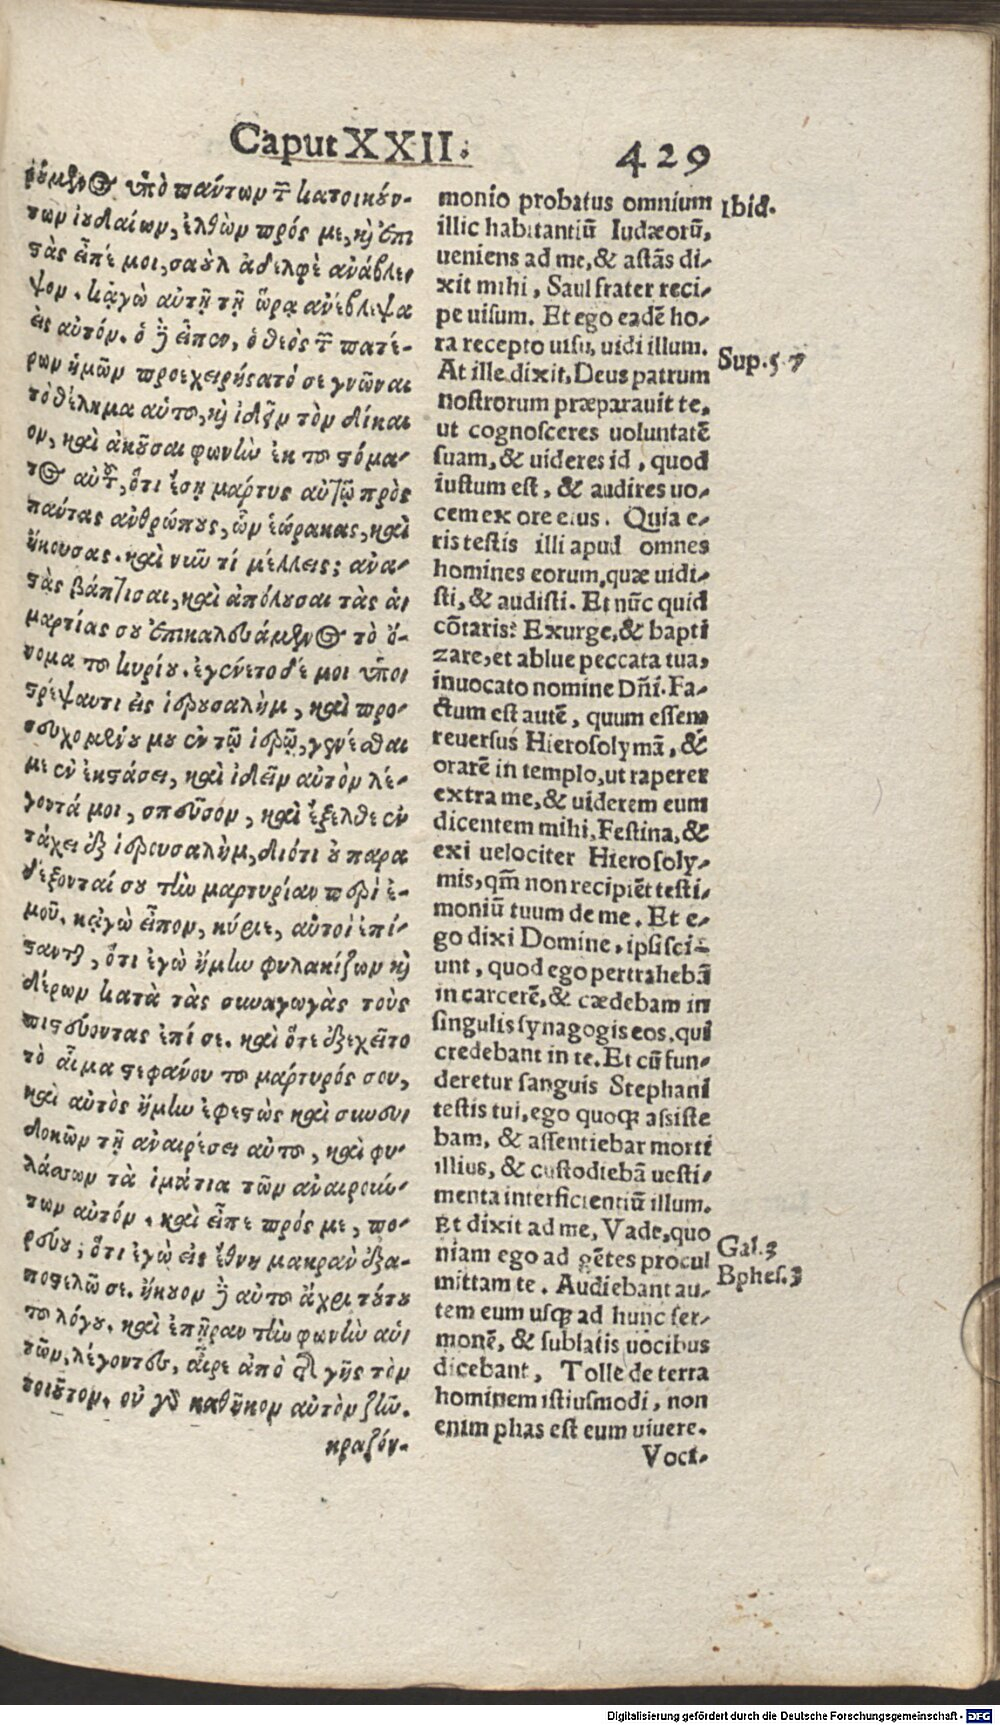 Caput XXII. 429
ρούμενος ὑπὸ πάντων τῶν κατοικούν-
των ἰουδαίων, ἐλθὼν πρός με, καὶ ἐπι
στὰς εἶπέ μοι, σαοὺλ ἀδελφὲ ἀνάβλε-
ψον. κἀγὼ αὐτῇ τῇ ὥρᾳ ἀνέβλεψα
εἰς αὐτόν. ὁ δὲ εἶπεν, ὁ θεὸς τῶν πατέ-
ρων ἡμῶν προεχειρήσατό σε γνῶναι
τὸ θέλημα αὐτοῦ, καὶ ἰδεῖν τὸν δίκαι
ον, καὶ ἀκοῦσαι φωνὴν ἐκ τοῦ στόμα-
τος αὐτοῦ, ὅτι ἔσῃ μάρτυς αὐτῷ πρὸς
πάντας ἀνθρώπους, ὧν ἑώρακας, καὶ
ἤκουσας. καὶ νῦν τί μέλλεις; ἀνα-
στὰς βάπτισαι, καὶ ἀπόλουσαι τὰς ἁ-
μαρτίας σου ἐπικαλεσάμενος τὸ ὄ-
νομα τοῦ κυρίου. ἐγένετο δέ μοι ὑπο-
στρέψαντι εἰς ἱερουσαλὴμ, καὶ προ-
σευχομένου μου ἐν τῷ ἱερῷ, γενέσθαι
με ἐν ἐκστάσει, καὶ ἰδεῖν αὐτὸν λέ-
γοντά μοι, σπεῦσον, καὶ ἔξελθε ἐν
τάχει ἐξ ἱερουσαλὴμ, διότι οὐ παρα
δέξονταί σου τὴν μαρτυρίαν περὶ ἐ-
μοῦ. κἀγὼ εἶπον, κύριε, αὐτοὶ ἐπί-
στανται, ὅτι ἐγὼ ἤμην φυλακίζων καὶ
δέρων κατὰ τὰς συναγωγὰς τοὺς
πιστεύοντας ἐπί σε. καὶ ὅτε ἐξεχεῖτο
τὸ αἷμα στεφάνου τοῦ μάρτυρός σου,
καὶ αὐτὸς ἤμην ἐφεστὼς καὶ συνευ-
δοκῶν τῇ ἀναιρέσει αὐτοῦ, καὶ φυ-
λάσσων τὰ ἱμάτια τῶν ἀναιρούν-
των αὐτόν. καὶ εἶπε πρός με, πο-
ρεύου; ὅτι ἐγὼ εἰς ἔθνη μακρὰν ἐξα-
ποστελῶ σε. ἤκουον δὲ αὐτοῦ ἄχρι τούτου
τοῦ λόγου. καὶ ἐπῆραν τὴν φωνὴν αὐ-
τῶν, λέγοντες, αἶρε ἀπὸ τῆς γῆς τὸν
τοιοῦτον. οὐ γὰρ καθῆκον αὐτὸν ζῆν.
κραζόν-
monio probatus omnium
illic habitantiũ Iudæorũ,
ueniens ad me, & astãs di-
xit mihi, Saul frater reci-
pe uisum. Et ego eadẽ ho-
ra recepto uisu, uidi illum.
At ille dixit, Deus patrum
nostrorum præparauit te,
ut cognosceres uoluntatẽ
suam, & uideres id, quod
iustum est, & audires uo-
cem ex ore eius. Quia e-
ris testis illi apud omnes
homines eorum, quæ uidi-
sti, & audisti. Et nũc quid
cõtaris? Exurge, & bapti
zare, et ablue peccata tua,
inuocato nomine Dñi. Fa-
ctum est autẽ, quum essem
reuersus Hierosolymã, &
orarẽ in templo, ut raperer
extra me, & uiderem eum
dicentem mihi, Festina, &
exi uelociter Hierosoly-
mis, qm̃ non recipiẽt testi-
moniũ tuum de me. Et e-
go dixi Domine, ipsi sci-
unt, quod ego pertrahebã
in carcerẽ, & cædebam in
singulis synagogis eos, qui
credebant in te. Et cũ fun-
deretur sanguis Stephani
testis tui, ego quoq; assiste
bam, & assentiebar morti
illius, & custodiebã uesti-
menta interficientiũ illum.
Et dixit ad me, Vade, quo
niam ego ad gẽtes procul
mittam te. Audiebant au-
tem eum usq; ad hunc ser-
monẽ, & sublatis uocibus
dicebant, Tolle de terra
hominem istiusmodi, non
enim phas est eum uiuere.
Voci-
Ibid.
Sup. 5. 7
Gal. 3
Ephes. 3
Digitalisierung gefördert durch die Deutsche Forschungsgemeinschaft - DFG